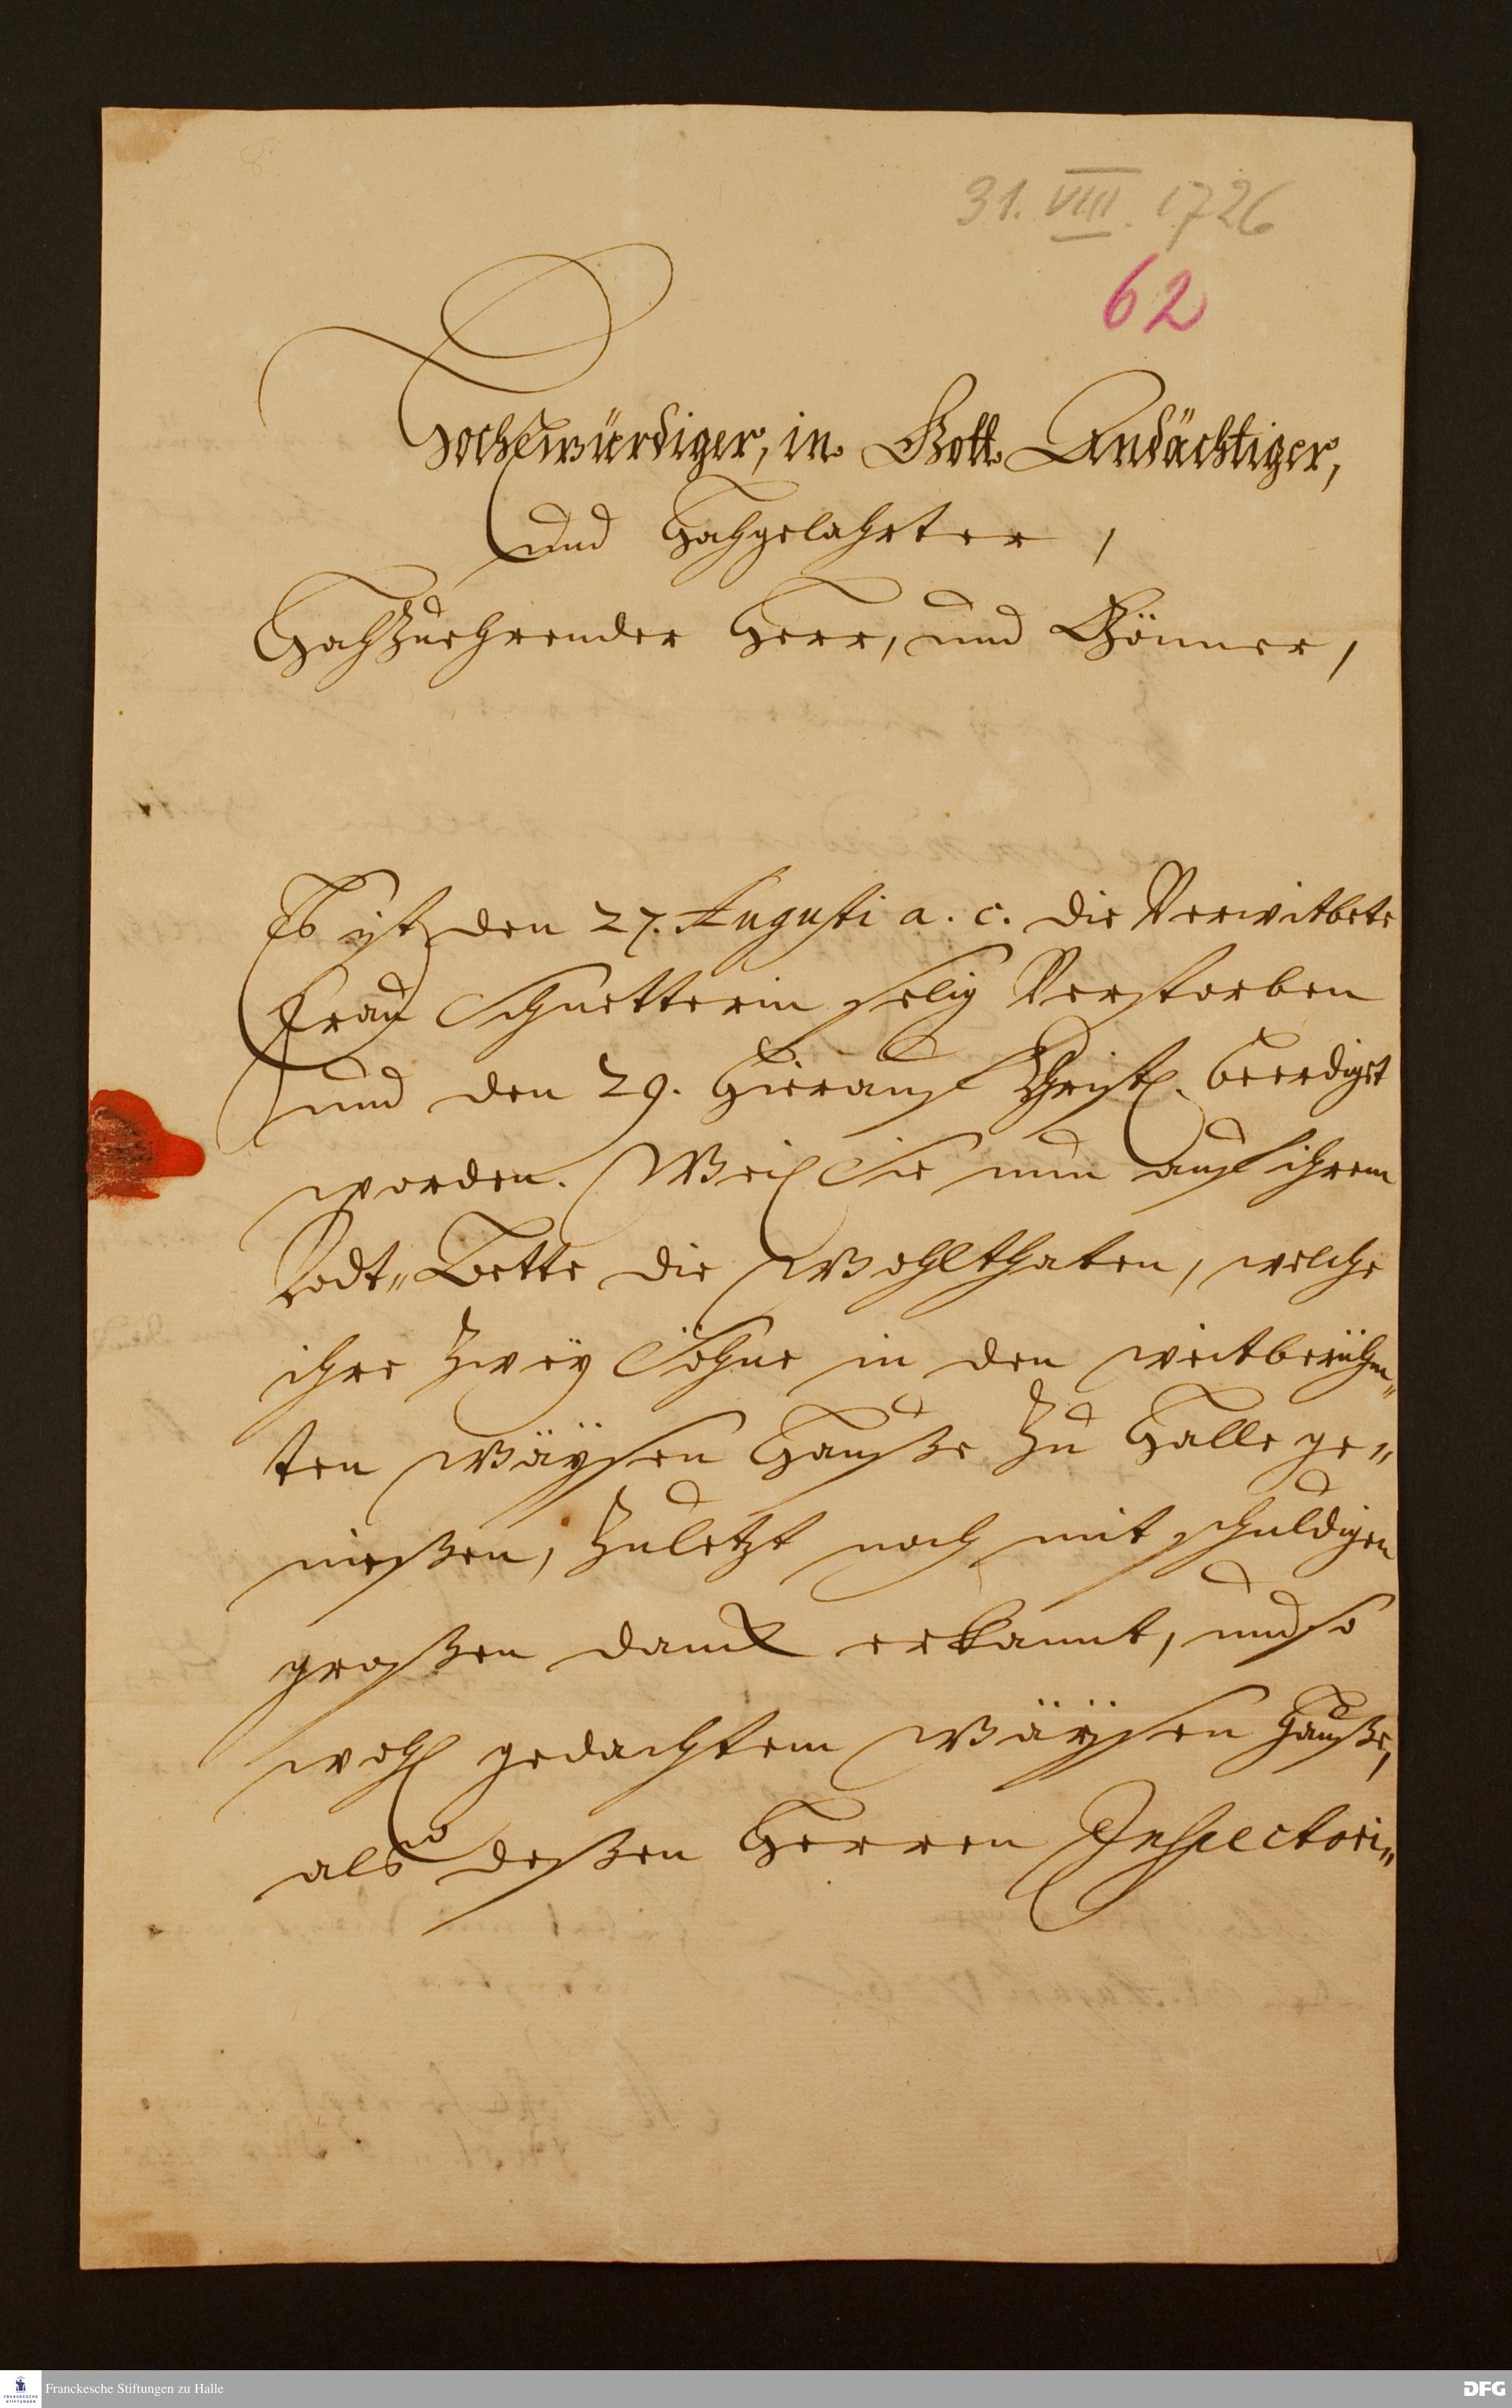 31. VIII. 1726
62
HochEhrwürdiger, in Gott Andächtiger,
und Hochgelahrter,
HochZuehrender Herr, und Gönner,
Es ist den 27. Augusti a. c. die Verwitbete
Frau Schnetterin selig Verstorben
und den 29. hierauf Christl. beerdiget
worden. Weil Sie nun auf ihrem
Todt„Bette die Wohlthaten, welche
ihre Zweÿ Söhne in den weitberühm„
ten Wäÿsen Hauße Zu Halle ge„
nießen, Zuletzt noch mit schuldigen
großen danck erkannt, und so
wohl gedachtem Wäÿsen Hauße,
als deßen Herren Inspectori„
Franckesche Stiftungen zu Halle
FRANCKESCHE
STIFTUNGEN
DFG